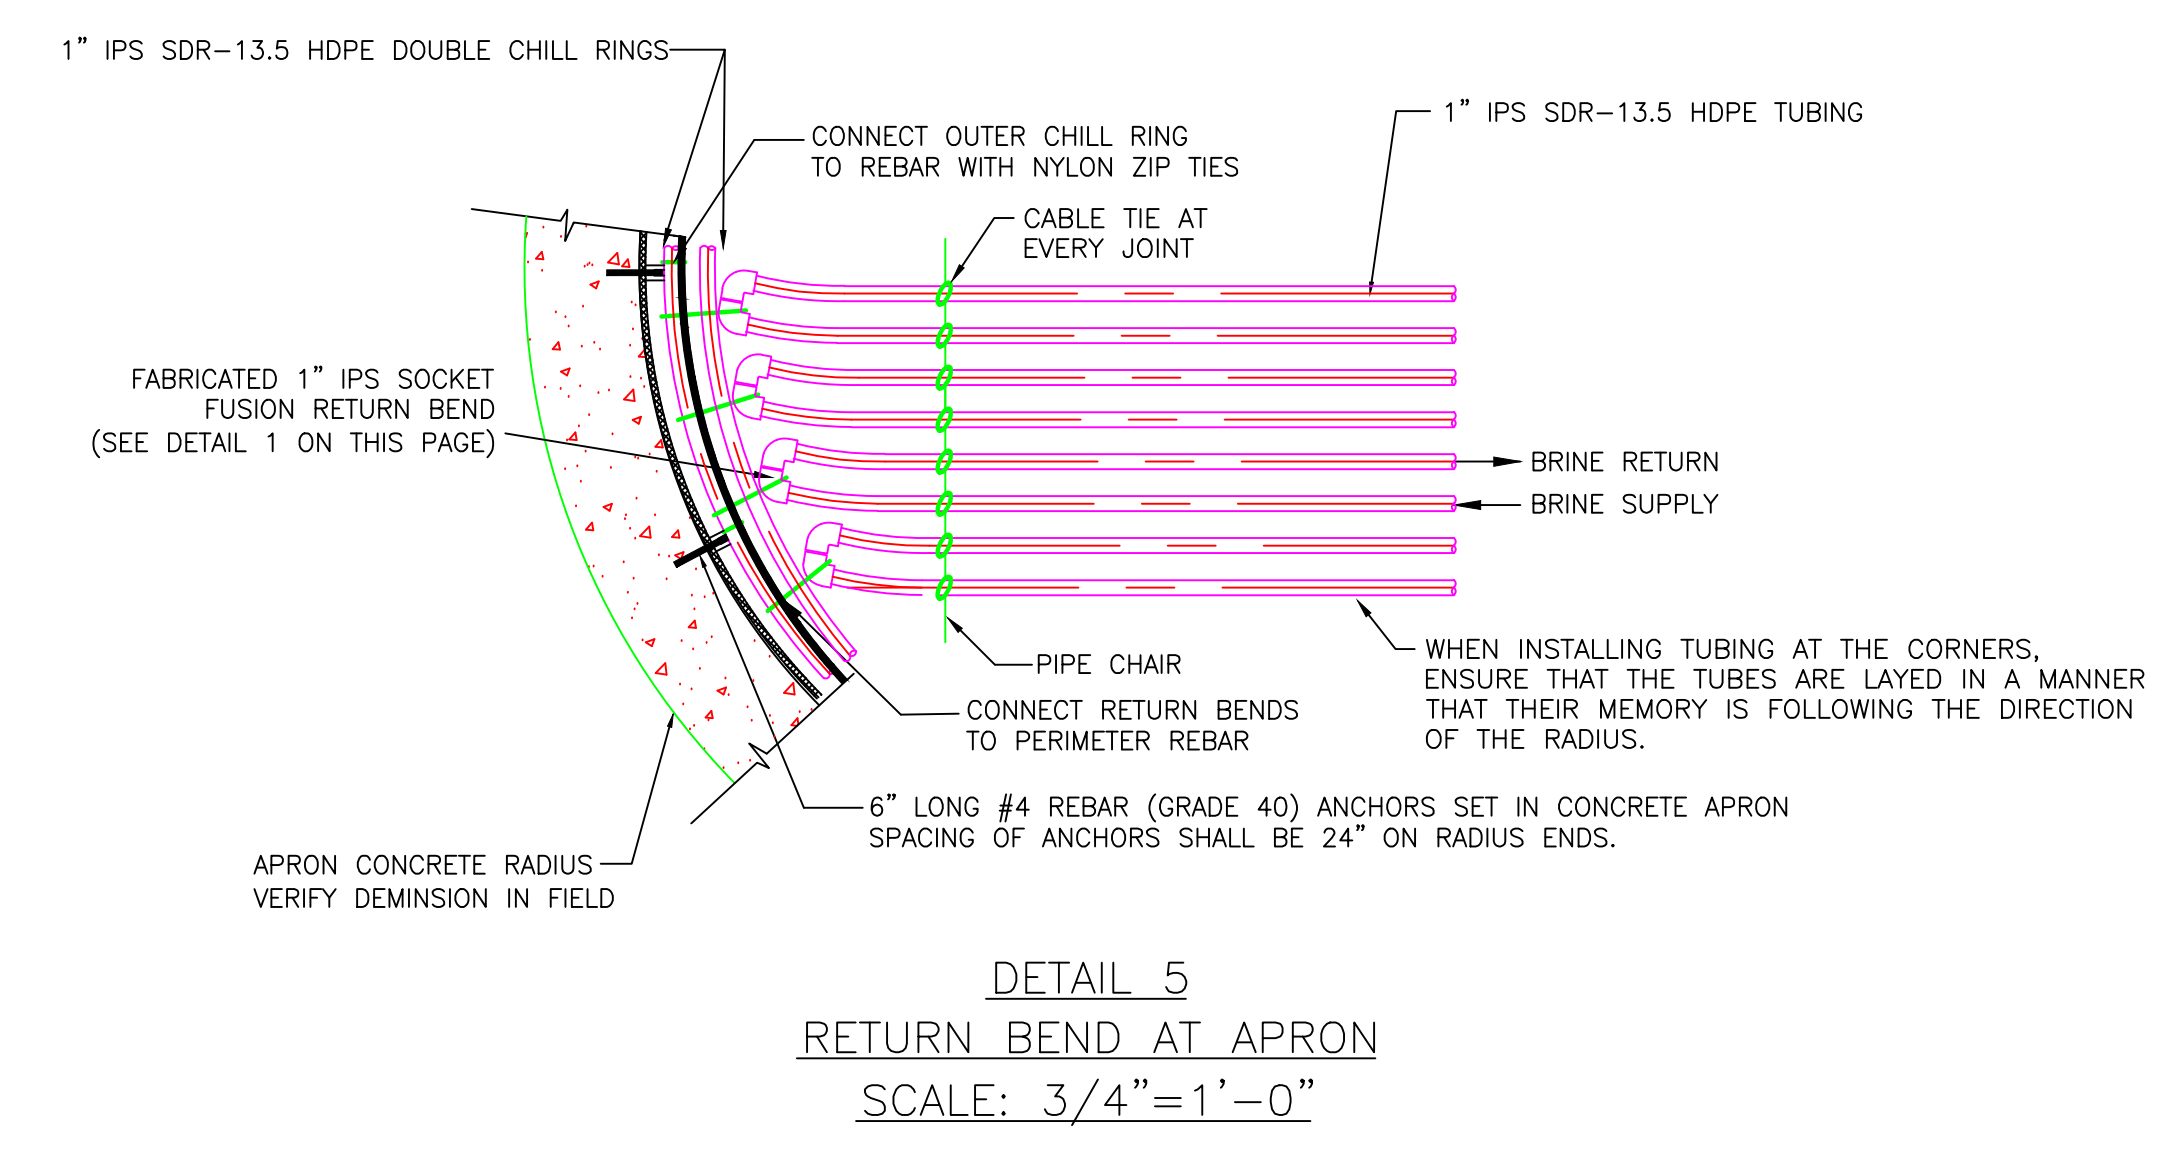 1” IPS SDR–13.5 HDPE DOUBLE CHILL RINGS
1” IPS SDR–13.5 HDPE TUBING
CONNECT OUTER CHILL RING
TO REBAR WITH NYLON ZIP TIES
CABLE TIE AT
EVERY JOINT
FABRICATED 1” IPS SOCKET
FUSION RETURN BEND
(SEE DETAIL 1 ON THIS PAGE)
BRINE RETURN
BRINE SUPPLY
WHEN INSTALLING TUBING AT THE CORNERS,
ENSURE THAT THE TUBES ARE LAYED IN A MANNER
THAT THEIR MEMORY IS FOLLOWING THE DIRECTION
OF THE RADIUS.
PIPE CHAIR
CONNECT RETURN BENDS
TO PERIMETER REBAR
6” LONG #4 REBAR (GRADE 40) ANCHORS SET IN CONCRETE APRON
SPACING OF ANCHORS SHALL BE 24” ON RADIUS ENDS.
APRON CONCRETE RADIUS
VERIFY DEMINSION IN FIELD
DETAIL 5
RETURN BEND AT APRON
SCALE: 3/4”=1’–0”